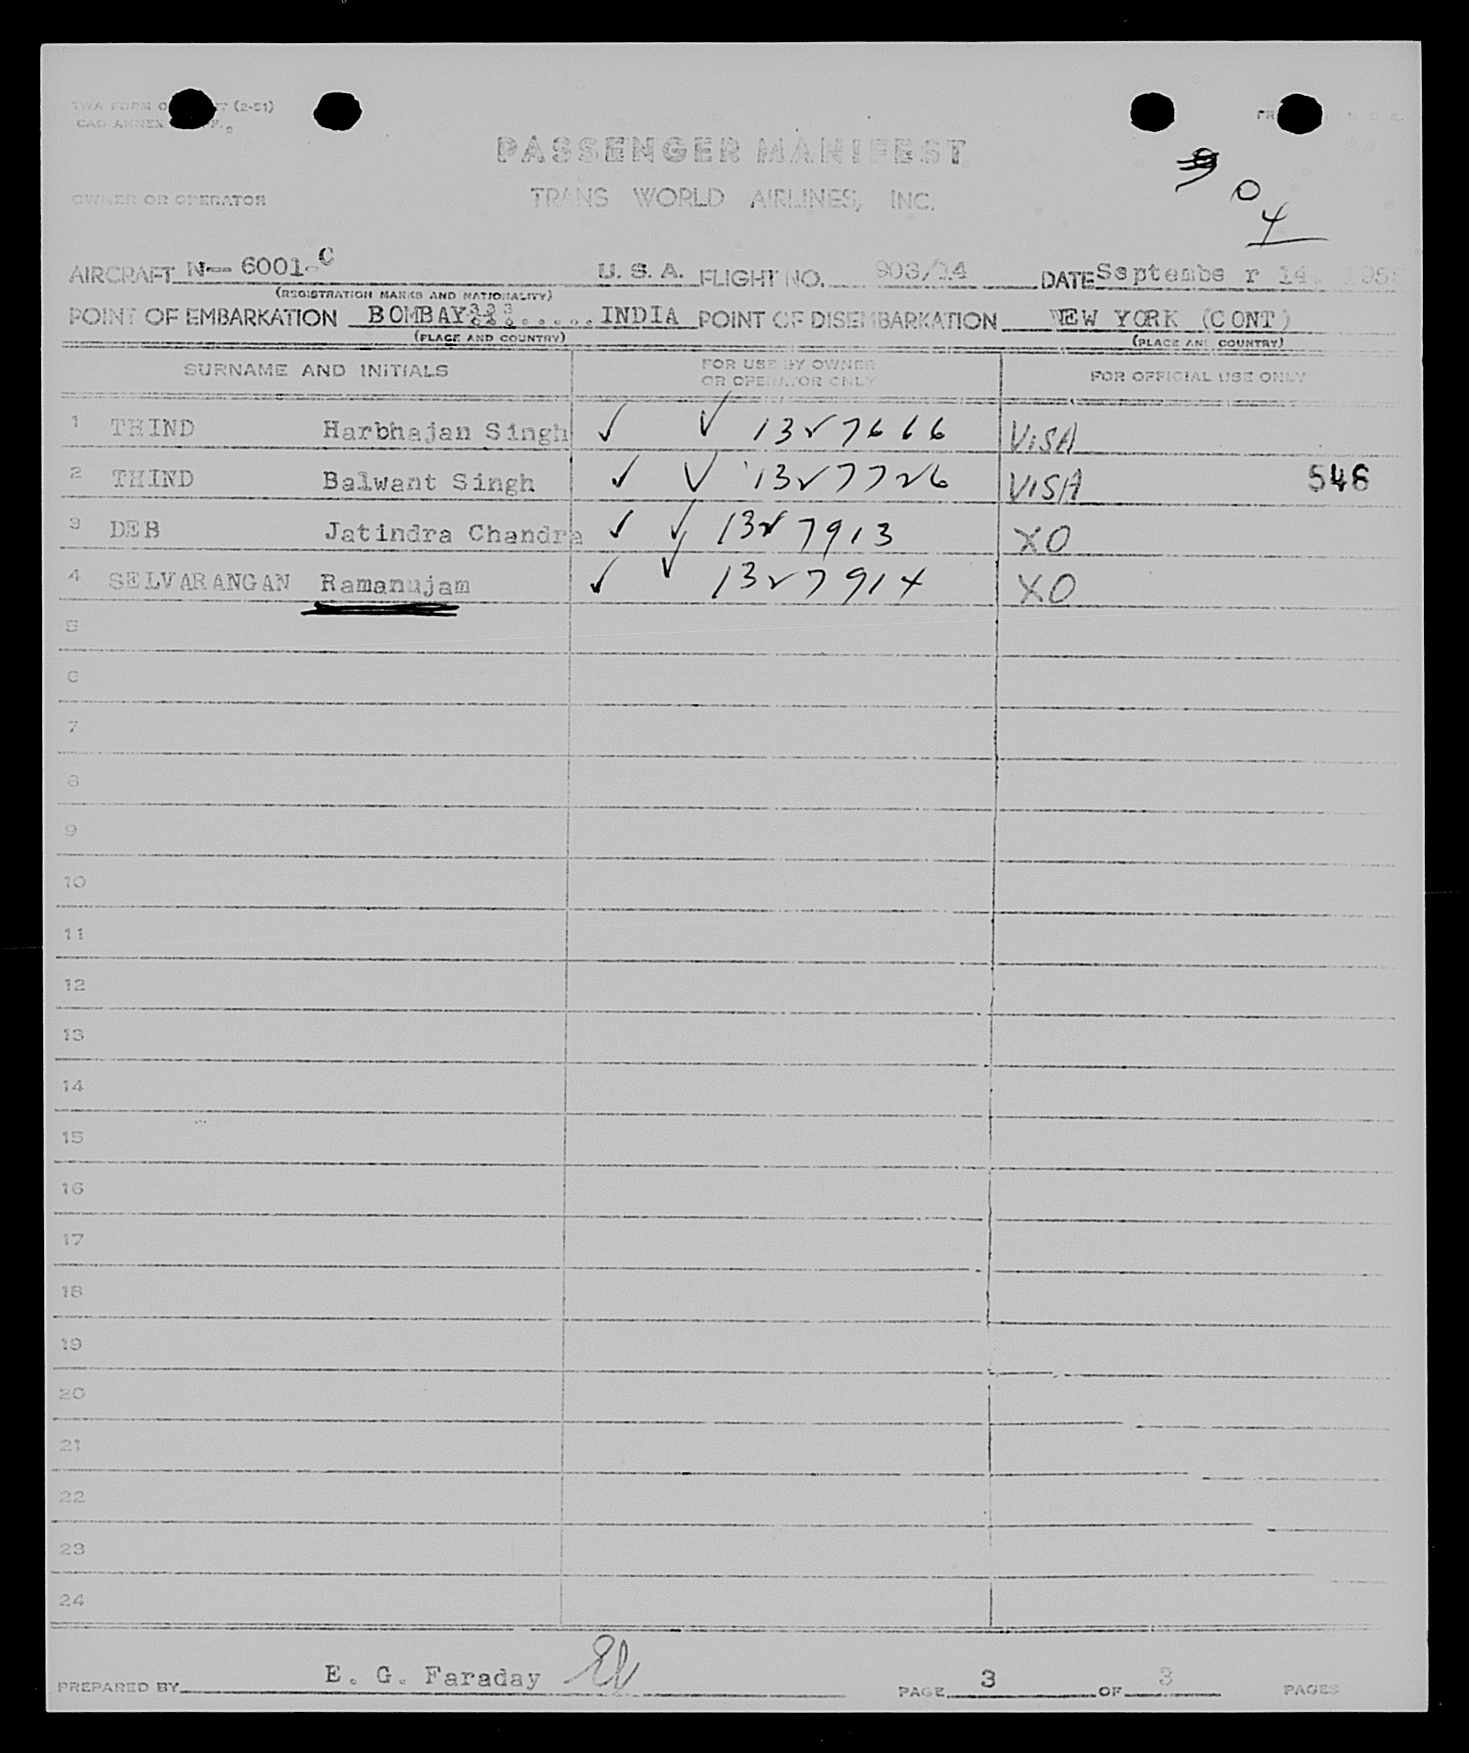 TWA FORM O (2-51)
CAO ANNEX
PASSENGER MANIFEST
TRANS WORLD AIRLINES, INC.
OWNER OR OPERATOR
9 0 4
AIRCRAFT N-- 6001-C U. S. A. FLIGHT NO. 903/14 DATE Ssptembe r 14.
(REGISTRATION MARKS AND NATIONALITY)
POINT OF EMBARKATION BOMBAY INDIA POINT OF DISEMBARKATION NEW YORK (CONT)
(PLACE AND COUNTRY) (PLACE AND COUNTRY)
SURNAME AND INITIALS FOR USE BY OWNER OR OPERATOR ONLY FOR OFFICIAL USE ONLY
1 THIND Harbhajan Singh ✓ ✓ 1327666 VISA
2 THIND Balwant Singh ✓ ✓ 1327726 VISA 546
3 DEB Jatindra Chandra ✓ ✓ 1327913 XO
4 SELVARANGAN Ramanujam ✓ ✓ 1327914 XO
5
6
7
8
9
10
11
12
13
14
15
16
17
18
19
20
21
22
23
24
PREPARED BY E. G. Faraday PAGE 3 OF 3 PAGES